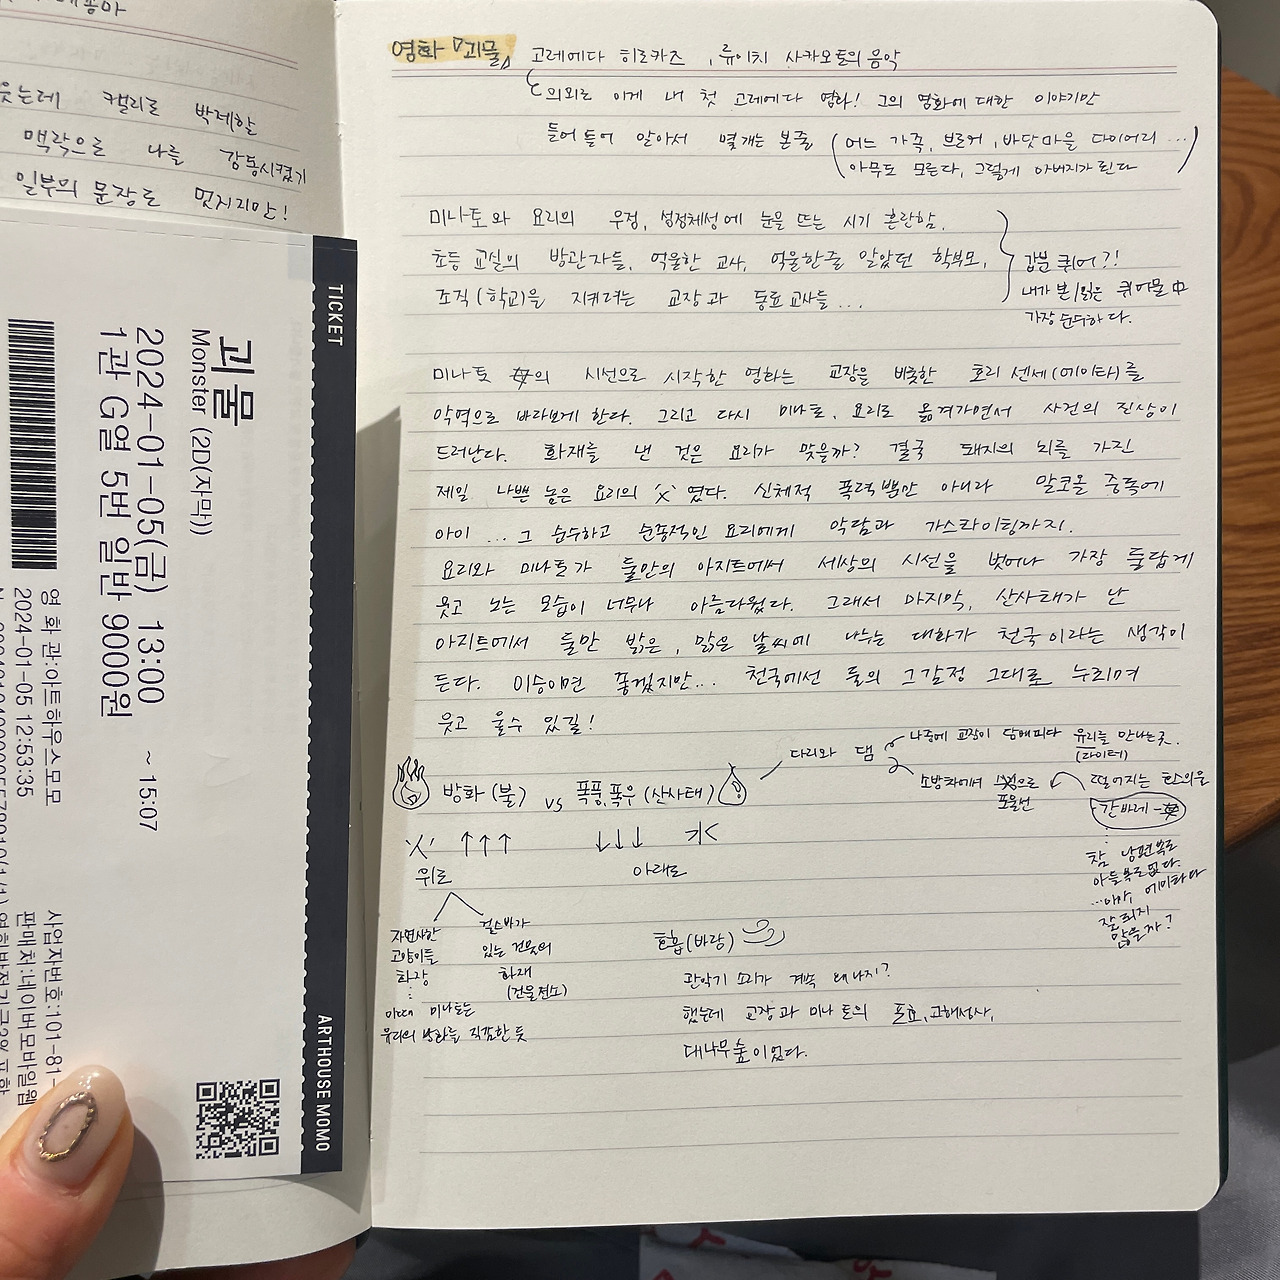 웃는데 캘리로 박제할
맥락으로 나를 감동시켰기
일부의 문장로 멋지지만!
TICKET
괴물
Monster (2D(자막))
2024-01-05(금) 13:00 ~ 15:07
1관 G열 5번 일반 9000원
영 화 관:아트하우스모모
2024-01-05 12:53:35
사업자번호:101-81-
판매처:네이버모바일웹
ARTHOUSE MOMO
영화 『괴물』 고레에다 히로카즈, 류이치 사카모토의 음악
의외로 이게 내 첫 고레에다 영화! 그의 영화에 대한 이야기만
들어 들어 알아서 몇개는 본줄 (어느 가족, 브로커, 바닷마을 다이어리 ...
아무도 모른다, 그렇게 아버지가 된다)
미나토와 요리의 우정, 성정체성에 눈을 뜨는 시기 혼란함.
초등 교실의 방관자들, 억울한 교사, 억울한줄 알았던 학부모,
조직(학교)을 지키려는 교장과 동료교사들...
갑분 퀴어?!
내가 본/읽은 퀴어물 中
가장 순수하다.
미나토 의 시선으로 시작한 영화는 교장을 비롯한 호리 센세(에이타)를
악역으로 바라보게 한다. 그리고 다시 미나토, 요리로 옮겨가면서 사건의 진상이
드러난다. 화재를 낸 것은 요리가 맞을까? 결국 돼지의 뇌를 가진
제일 나쁜 놈은 요리의 '父'였다. 신체적 폭력뿐만 아니라 알코올 중독에
아이 ... 그 순수하고 순종적인 요리에게 악담과 가스라이팅까지.
요리와 미나토가 둘만의 아지트에서 세상의 시선을 벗어나 가장 둘답게
웃고 노는 모습이 너무나 아름다웠다. 그래서 마지막, 산사태가 난
아지트에서 둘만 밝은, 맑은 날씨에 나누는 대화가 천국이라는 생각이
든다. 이승이면 좋겠지만... 천국에선 둘의 그감정 그대로 누리며
웃고 울수 있길!
다리와 댐
나중에 교장이 담배피다 유리를 만나는곳.
(라이터)
소방차에서 으로
떨어지는
간바레-
방화(불) vs 폭풍,폭우(산사태)
父 ↑↑↑ ↓↓↓ 子
위로 아래로
자연사한
고양이를
화장
걸스바가
있는 건물의
화재
(건물전소)
이때 미나토는
유리의 방화를 직감한 듯
참 남편복도
아들복도없다.
잘 되지
않을까?
호흡(바람)
관악기 소리가 계속 왜나지?
했는데 교장과 미나토의 포효, 고해성사,
대나무숲이었다.